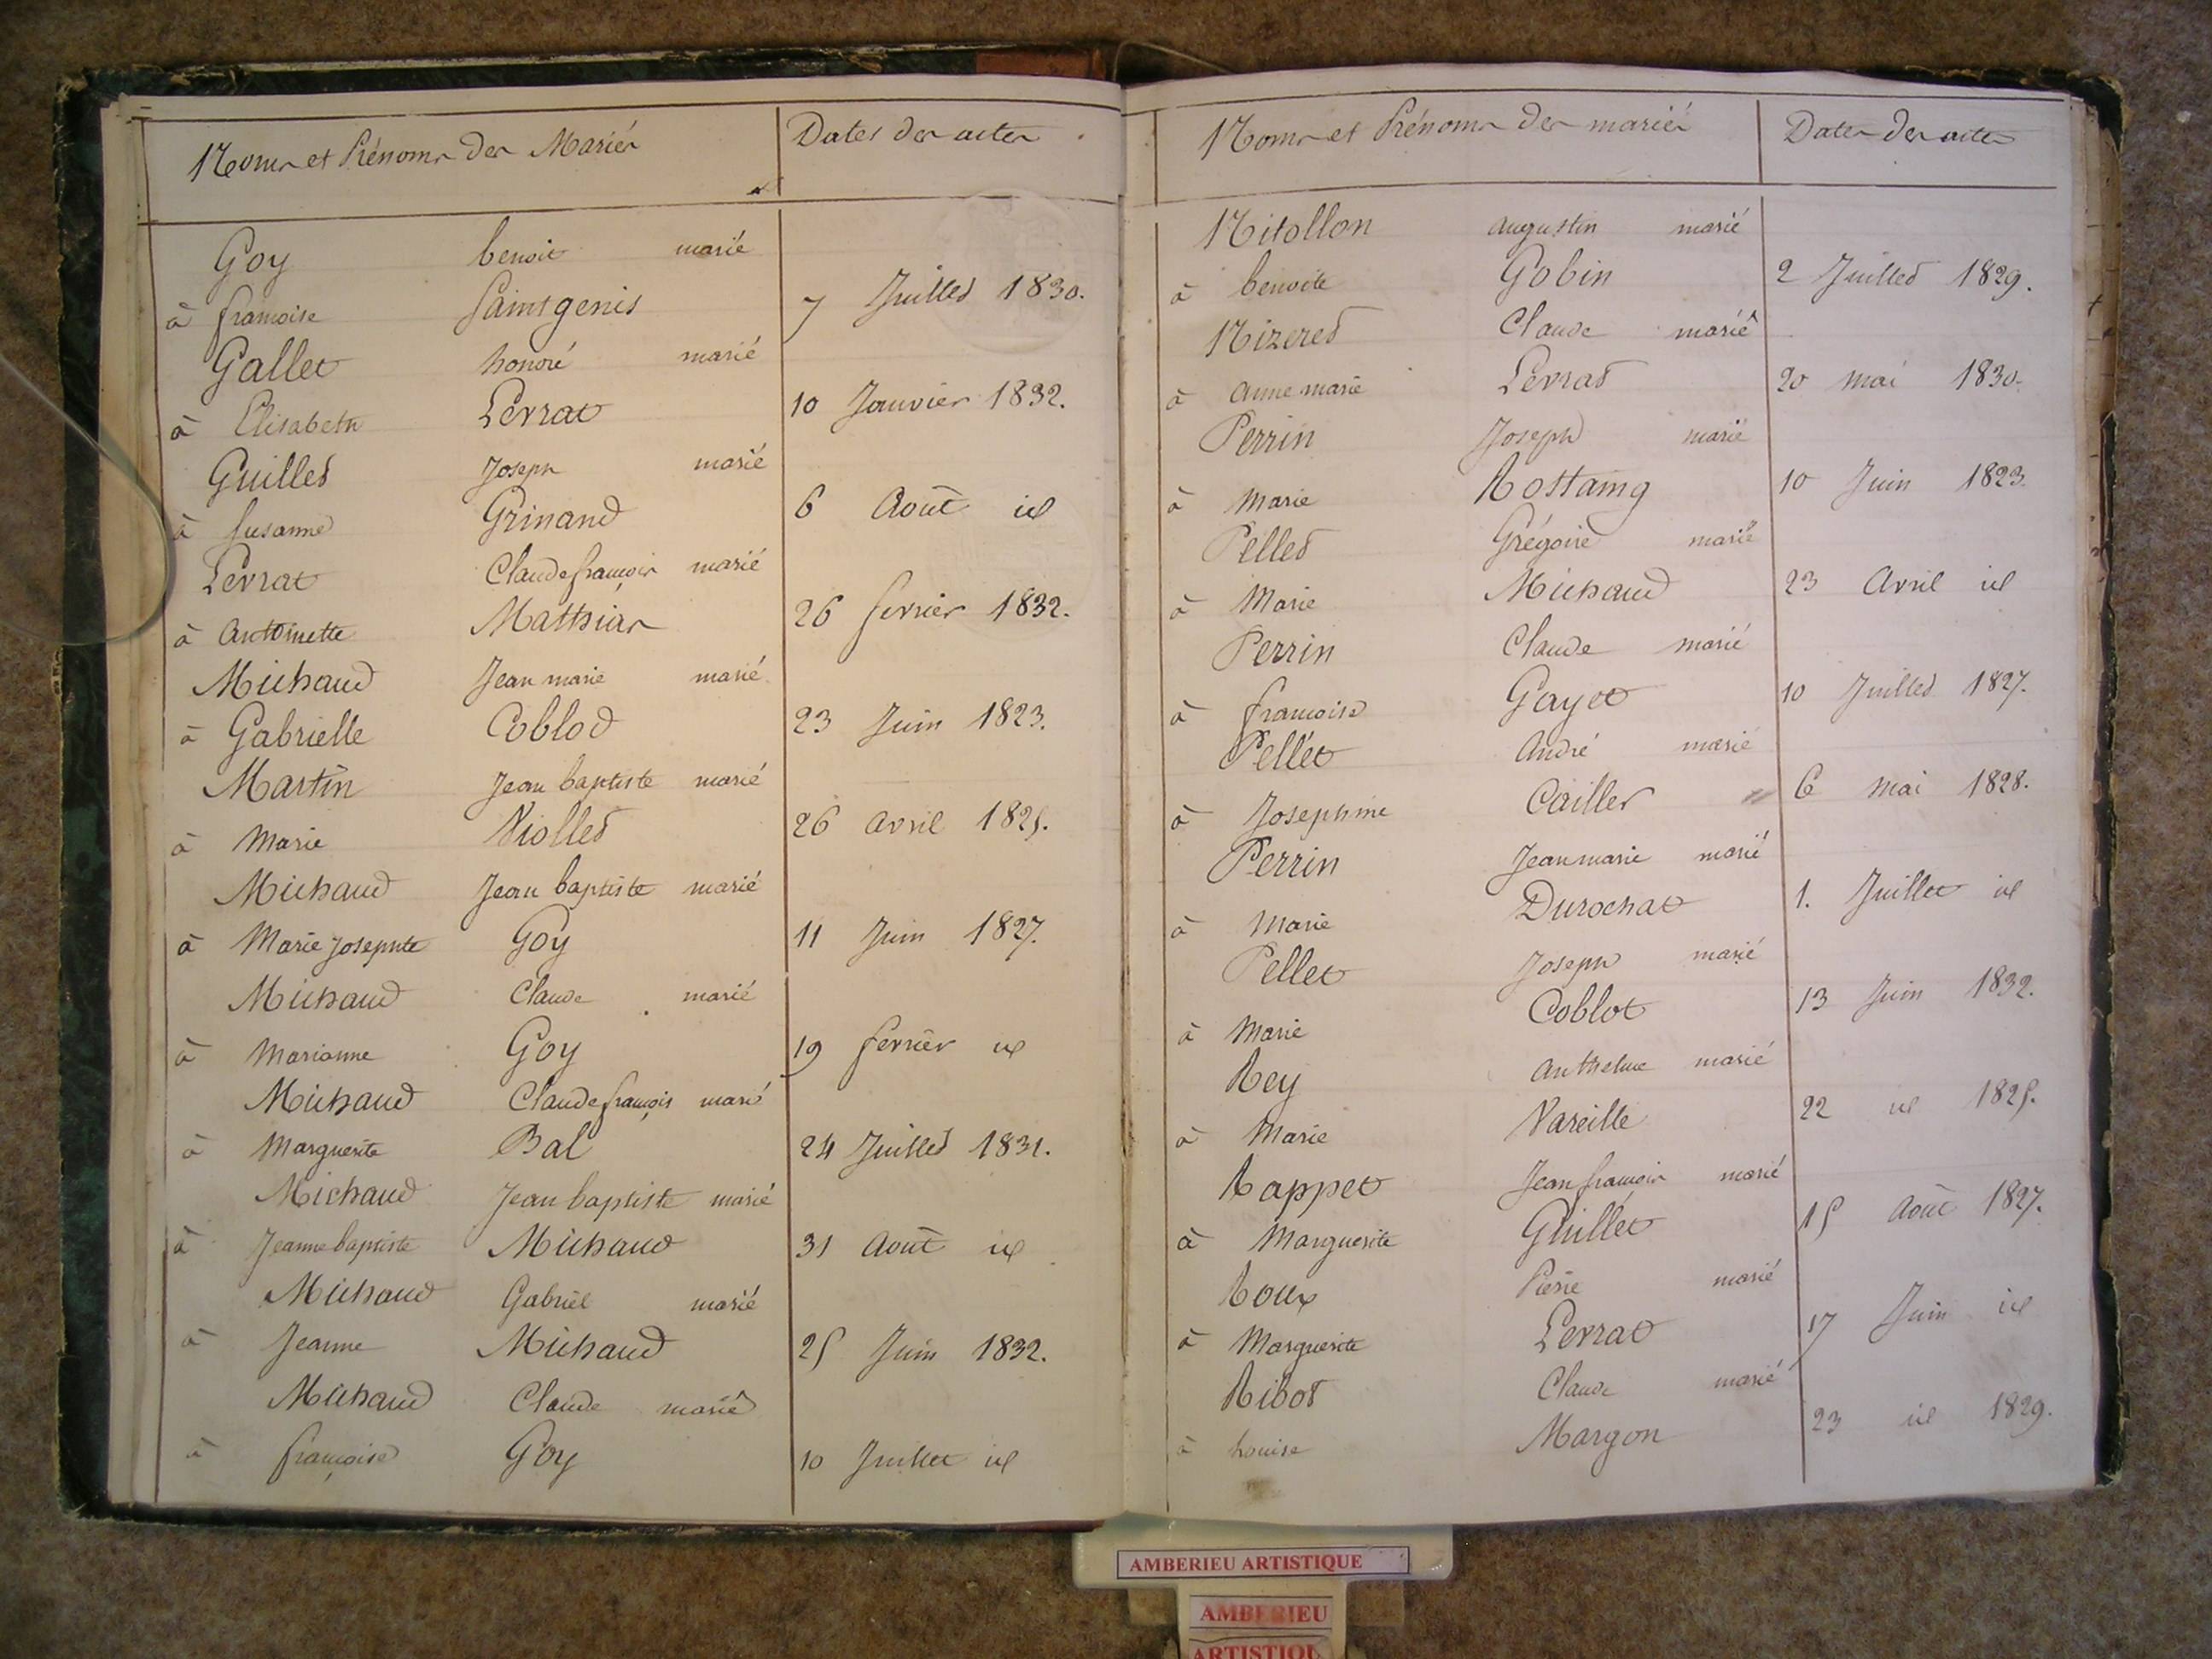 Noms et Prénoms des Mariés Dates des actes
Goy benoit marié
à françoise Saintgenis 7 Juillet 1830.
Gallet honoré marié
à Elisabeth Levrat 10 Janvier 1832.
Guillet Joseph marié
à Susanne Grinand 6 Août id
Levrat Claude françois marié
à Antoinette Matthias 26 fevrier 1832.
Michaud Jean marie marié
à Gabrielle Coblod 23 Juin 1823.
Martin Jean baptiste marié
à Marie Violled 26 avril 1825.
Michaud Jean baptiste marié
à Marie Josephte Goy 11 Juin 1827.
Michaud Claude marié
à Marianne Goy 19 fevrier id
Michaud Claude françois marié
à Marguerite Bal 24 Juillet 1831.
Michaud Jean baptiste marié
à Jeanne baptiste Michaud 31 Août id
Michaud Gabriel marié
à Jeanne Michaud 25 Juin 1832.
Michaud Claude marié
à françoise Goy 10 Juillet id
Noms et Prénoms des mariés Dates des actes
Nitollon augustin marié
à benoite Gobin 2 Juillet 1829.
Nizeret Claude marié
à anne marie Levrat 20 mai 1830.
Perrin Joseph marié
à Marie Rostaing 10 Juin 1823.
Pellet Grégoire marié
à Marie Michaud 23 Avril id
Perrin Claude marié
à françoise Gayet 10 Juillet 1827.
Pellet André marié
à Josephine Cailler 6 mai 1828.
Perrin Jean marie marié
à Marie Durochat 1. Juillet id
Pellet Joseph marié
à Marie Coblot 13 Juin 1832.
Rey Anthelme marié
à Marie Vareille 22 id 1825.
Rappet Jean françois marié
à Marguerite Guillet 15 Août 1827.
Roux Pierre marié
à Marguerite Levrat 17 Juin id
Ribot Claude marié
à Louise Margon 23 id 1829.
AMBERIEU ARTISTIQUE
AMBERIEU
ARTISTIQU